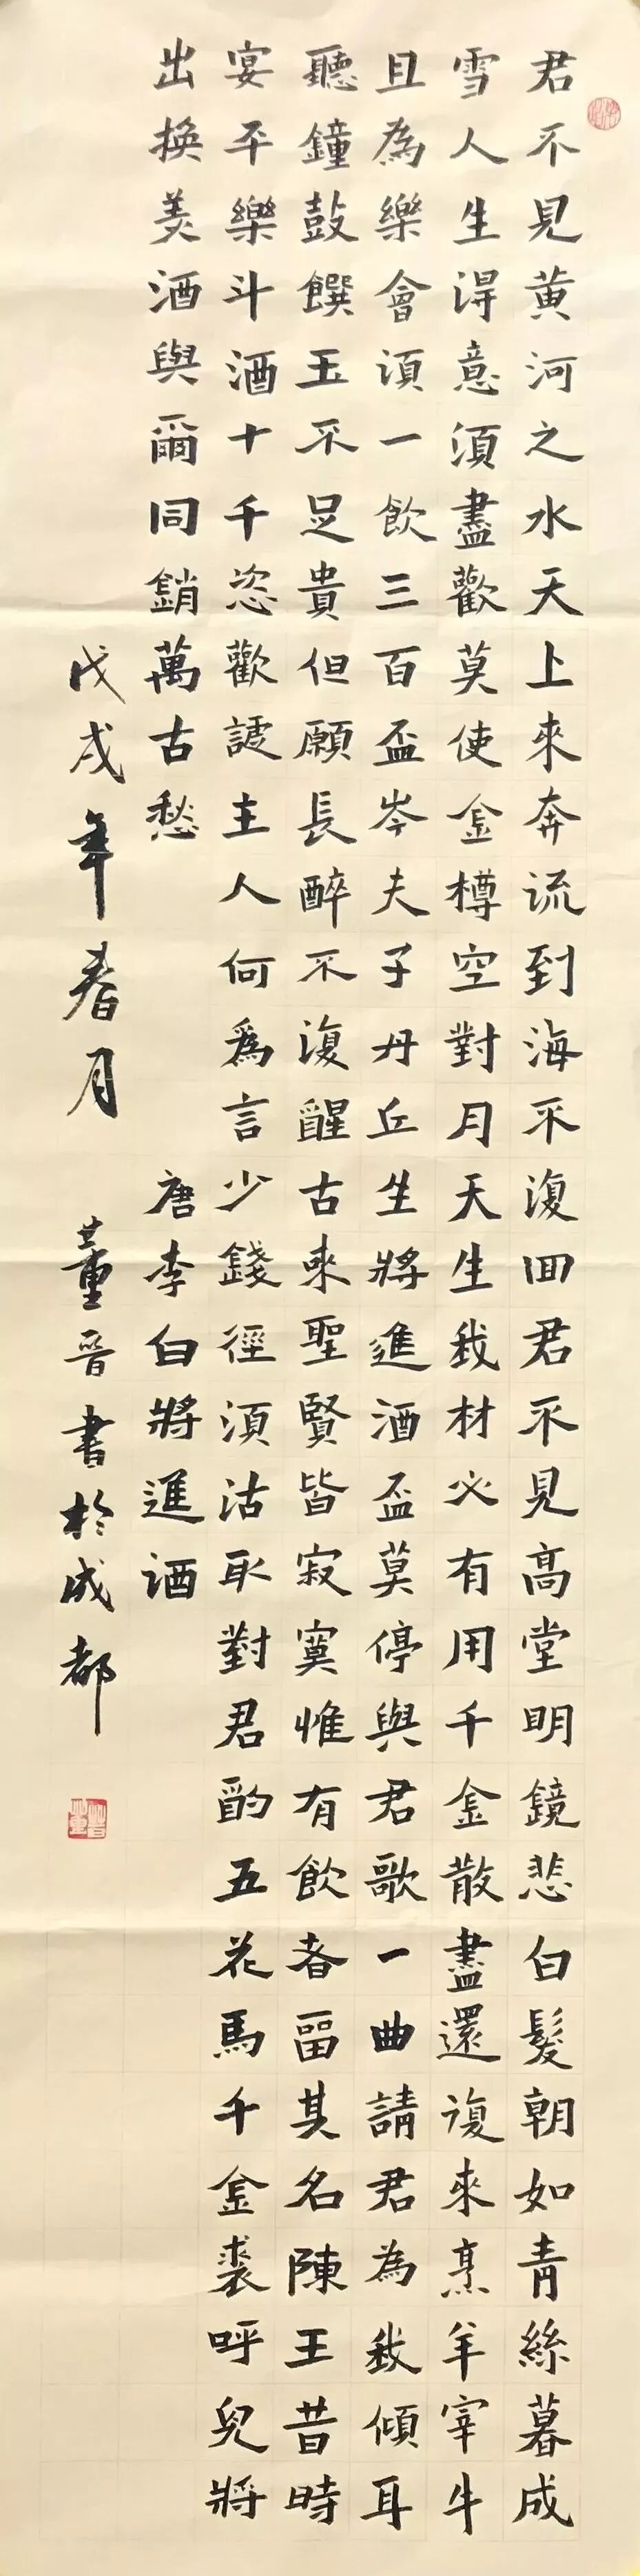 君不見黄河之水天上來奔流到海不復回君不見高堂明鏡悲白髮朝如青絲暮成
雪人生得意須盡歡莫使金樽空對月天生我材必有用千金散盡還復來烹羊宰牛
且為樂會須一飲三百盃岑夫子丹丘生將進酒盃莫停與君歌一曲請君為我傾耳
聽鐘鼓饌玉不足貴但願長醉不復醒古來聖賢皆寂寞惟有飲者留其名陳王昔時
宴平樂斗酒十千恣歡謔主人何爲言少錢徑須沽取對君酌五花馬千金裘呼兒將
出換美酒與爾同銷萬古愁 唐李白將進酒
戊戌年春月 董晉書於成都